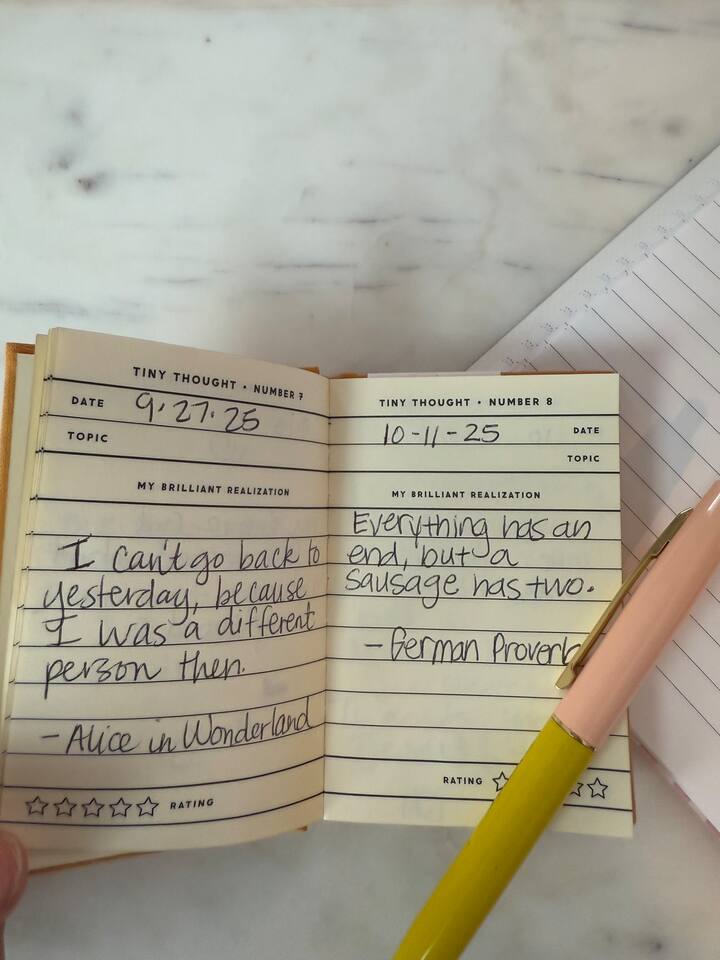 TINY THOUGHT • NUMBER 7
DATE 9.27.25
TOPIC
MY BRILLIANT REALIZATION
I can't go back to
yesterday, because
I was a different
person then.
- Alice in Wonderland
RATING
TINY THOUGHT • NUMBER 8
10-11-25 DATE
TOPIC
MY BRILLIANT REALIZATION
Everything has an
end, but a
sausage has two.
- German Proverb
RATING